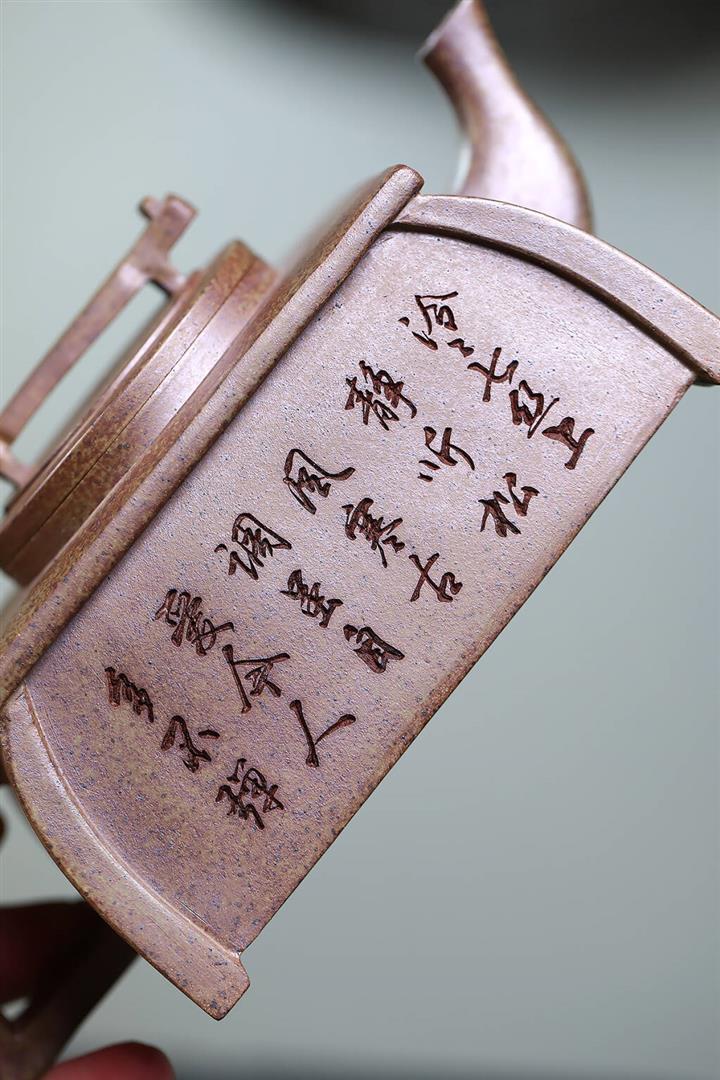 泠〻七弦上
静听松
風寒古
调虽自
爱今人
多不弹